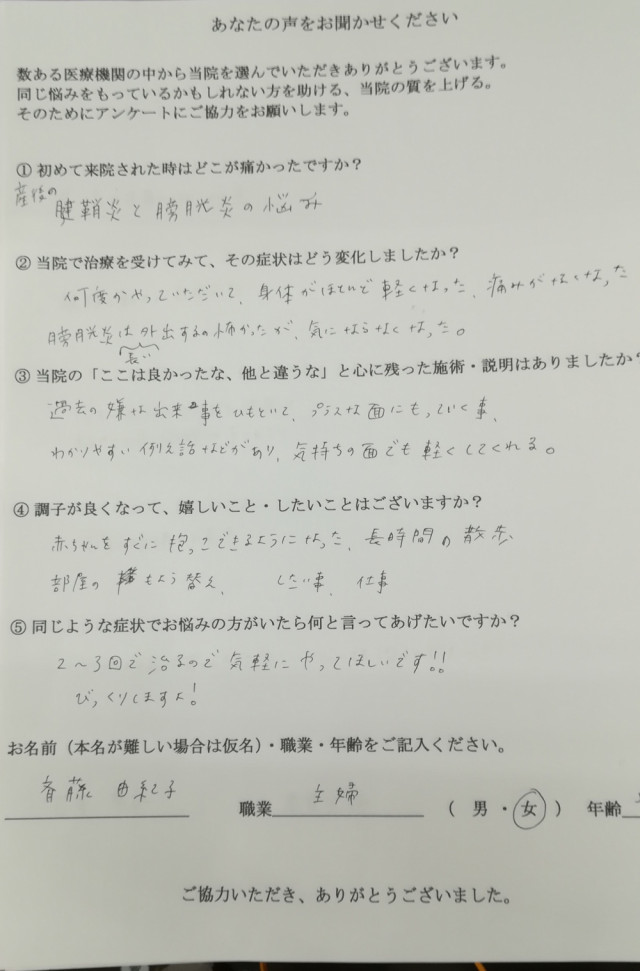 あなたの声をお聞かせください
数ある医療機関の中から当院を選んでいただきありがとうございます。
同じ悩みをもっているかもしれない方を助ける、当院の質を上げる。
そのためにアンケートにご協力をお願いします。
① 初めて来院された時はどこが痛かったですか？
産後の
腱鞘炎と膀胱炎の悩み
② 当院で治療を受けてみて、その症状はどう変化しましたか？
何度かやっていただいて、身体がほとんど軽くなった、痛みがなくなった
膀胱炎は外出するの怖かったが、気にならなくなった。
長い
③ 当院の「ここは良かったな、他と違うな」と心に残った施術・説明はありましたか？
過去の嫌な出来事をひもといて、プラスな面にもっていく事、
わかりやすい例え話などがあり、気持ちの面でも軽くしてくれる。
④ 調子が良くなって、嬉しいこと・したいことはございますか？
赤ちゃんをすぐに抱っこできるようになった、長時間の散歩
部屋のもよう替え、 したい事、 仕事
⑤ 同じような症状でお悩みの方がいたら何と言ってあげたいですか？
2～3回で治るので気軽にやってほしいです!!
びっくりしますよ!
お名前（本名が難しい場合は仮名）・職業・年齢をご記入ください。
斉藤 由紀子 職業 主婦 （ 男 ・ 女 ） 年齢
ご協力いただき、ありがとうございました。